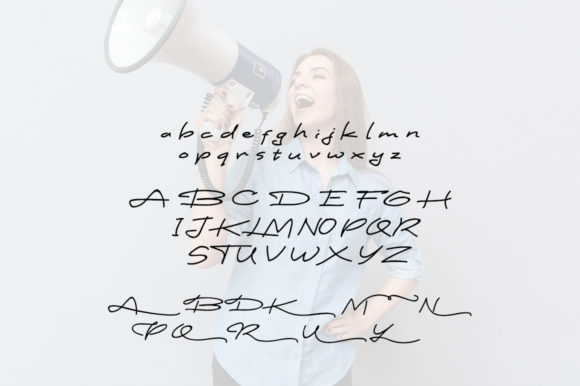 a b c d e f g h i j k l m n
o p q r s t u v w x y z
A B C D E F G H
I J K L M N O P Q R
S T U V W X Y Z
A B D K M N
P Q R U Y